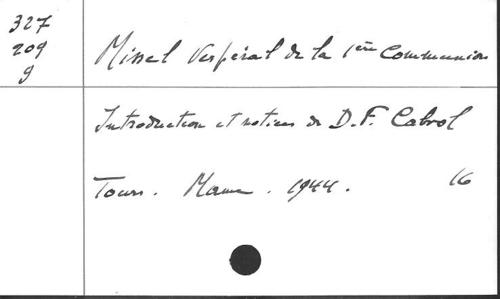 327
209
9
Missel Vespéral de la 1ère Communion
Introduction et notices de D.F. Cabrol
Tours. Mame. 1944. 16